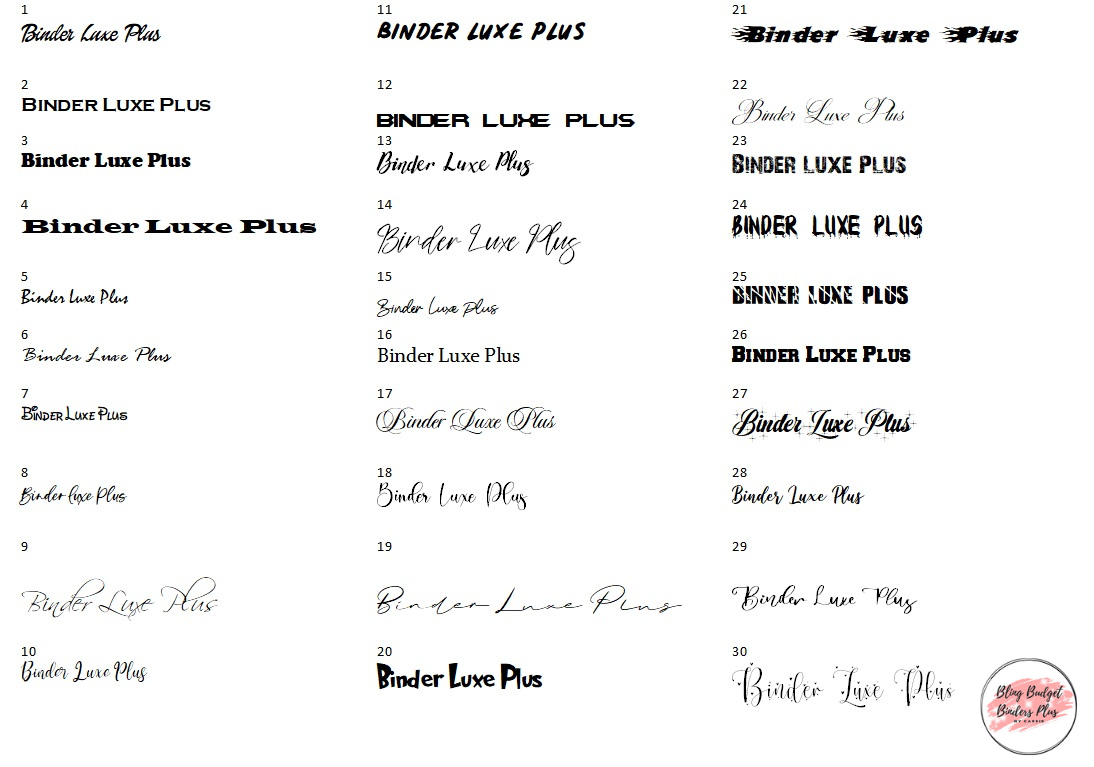 1
Binder Luxe Plus
2
BINDER LUXE PLUS
3
Binder Luxe Plus
4
Binder Luxe Plus
5
Binder Luxe Plus
6
Binder Luxe Plus
7
BINDER LUXE PLUS
8
Binder luxe Plus
9
Binder Luxe Plus
10
Binder Luxe Plus
11
BINDER LUXE PLUS
12
BINDER LUXE PLUS
13
Binder Luxe Plus
14
Binder Luxe Plus
15
Binder Luxe Plus
16
Binder Luxe Plus
17
Binder Luxe Plus
18
Binder Luxe Plus
19
Binder Luxe Plus
20
Binder Luxe Plus
21
Binder Luxe Plus
22
Binder Luxe Plus
23
BINDER LUXE PLUS
24
BINDER LUXE PLUS
25
BINDER LUXE PLUS
26
BINDER LUXE PLUS
27
Binder Luxe Plus
28
Binder Luxe Plus
29
Binder Luxe Plus
30
Binder Luxe Plus
Bling Budget
Binders Plus
BY CASSIE